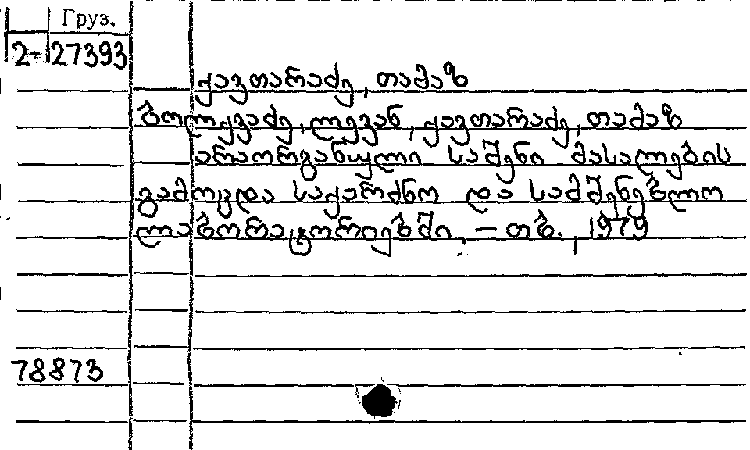 Груз.
2-27393
ქავთარაძე, თამაზ
ბოლქვაძე, ლევან, ქავთარაძე, თამაზ
არაორგანული საშენი მასალების
გამოცდა საქარხნო და სამშენებლო
ლაბორატორიებში. — თბ., 1979
78873